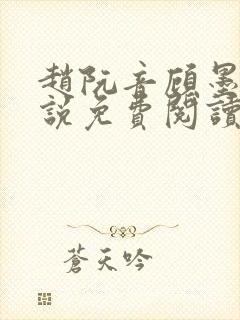 趙阮音顧墨
說免費閱讀
蒼天吟